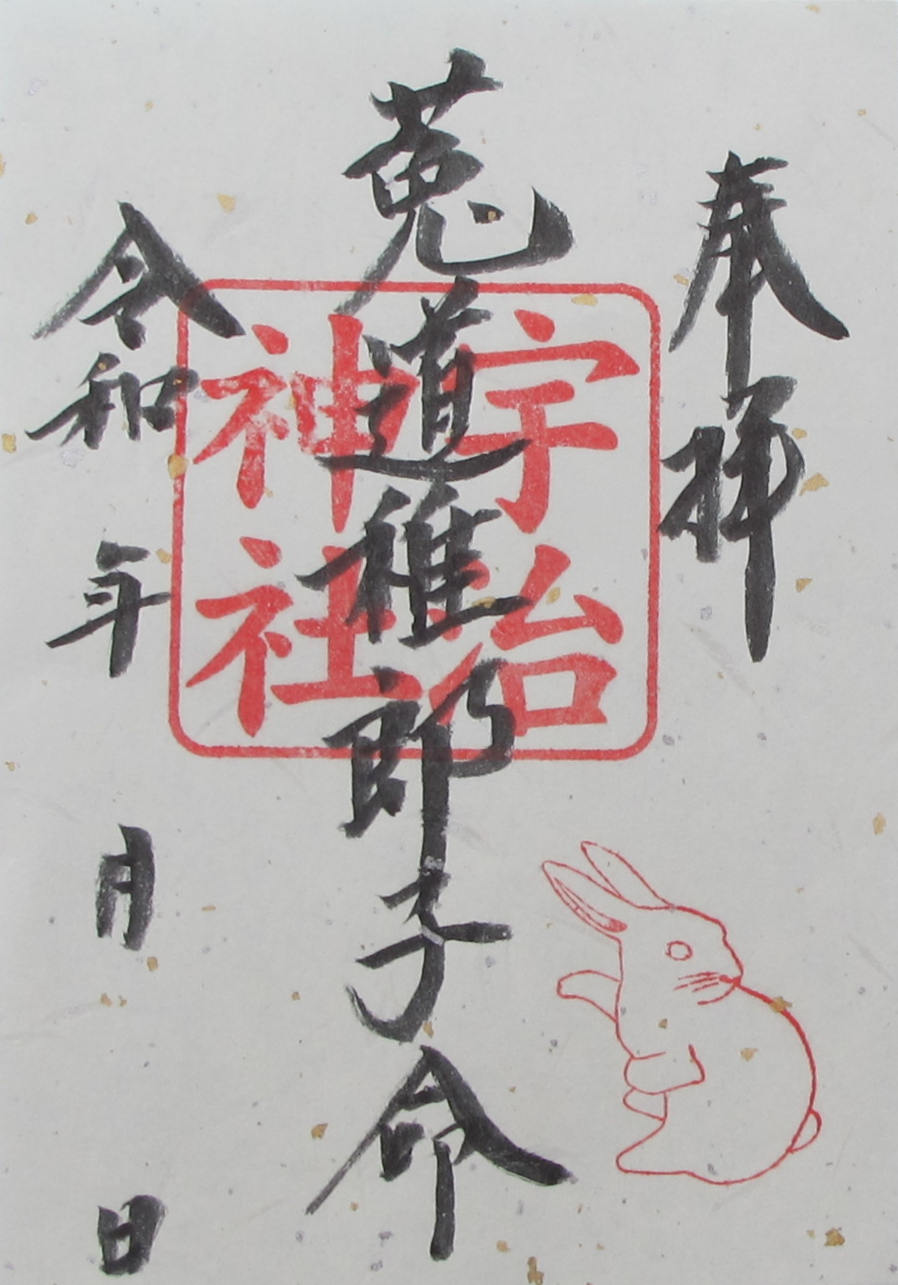 奉拝
菟道稚郎子命
宇治
神社
令和 年 月 日